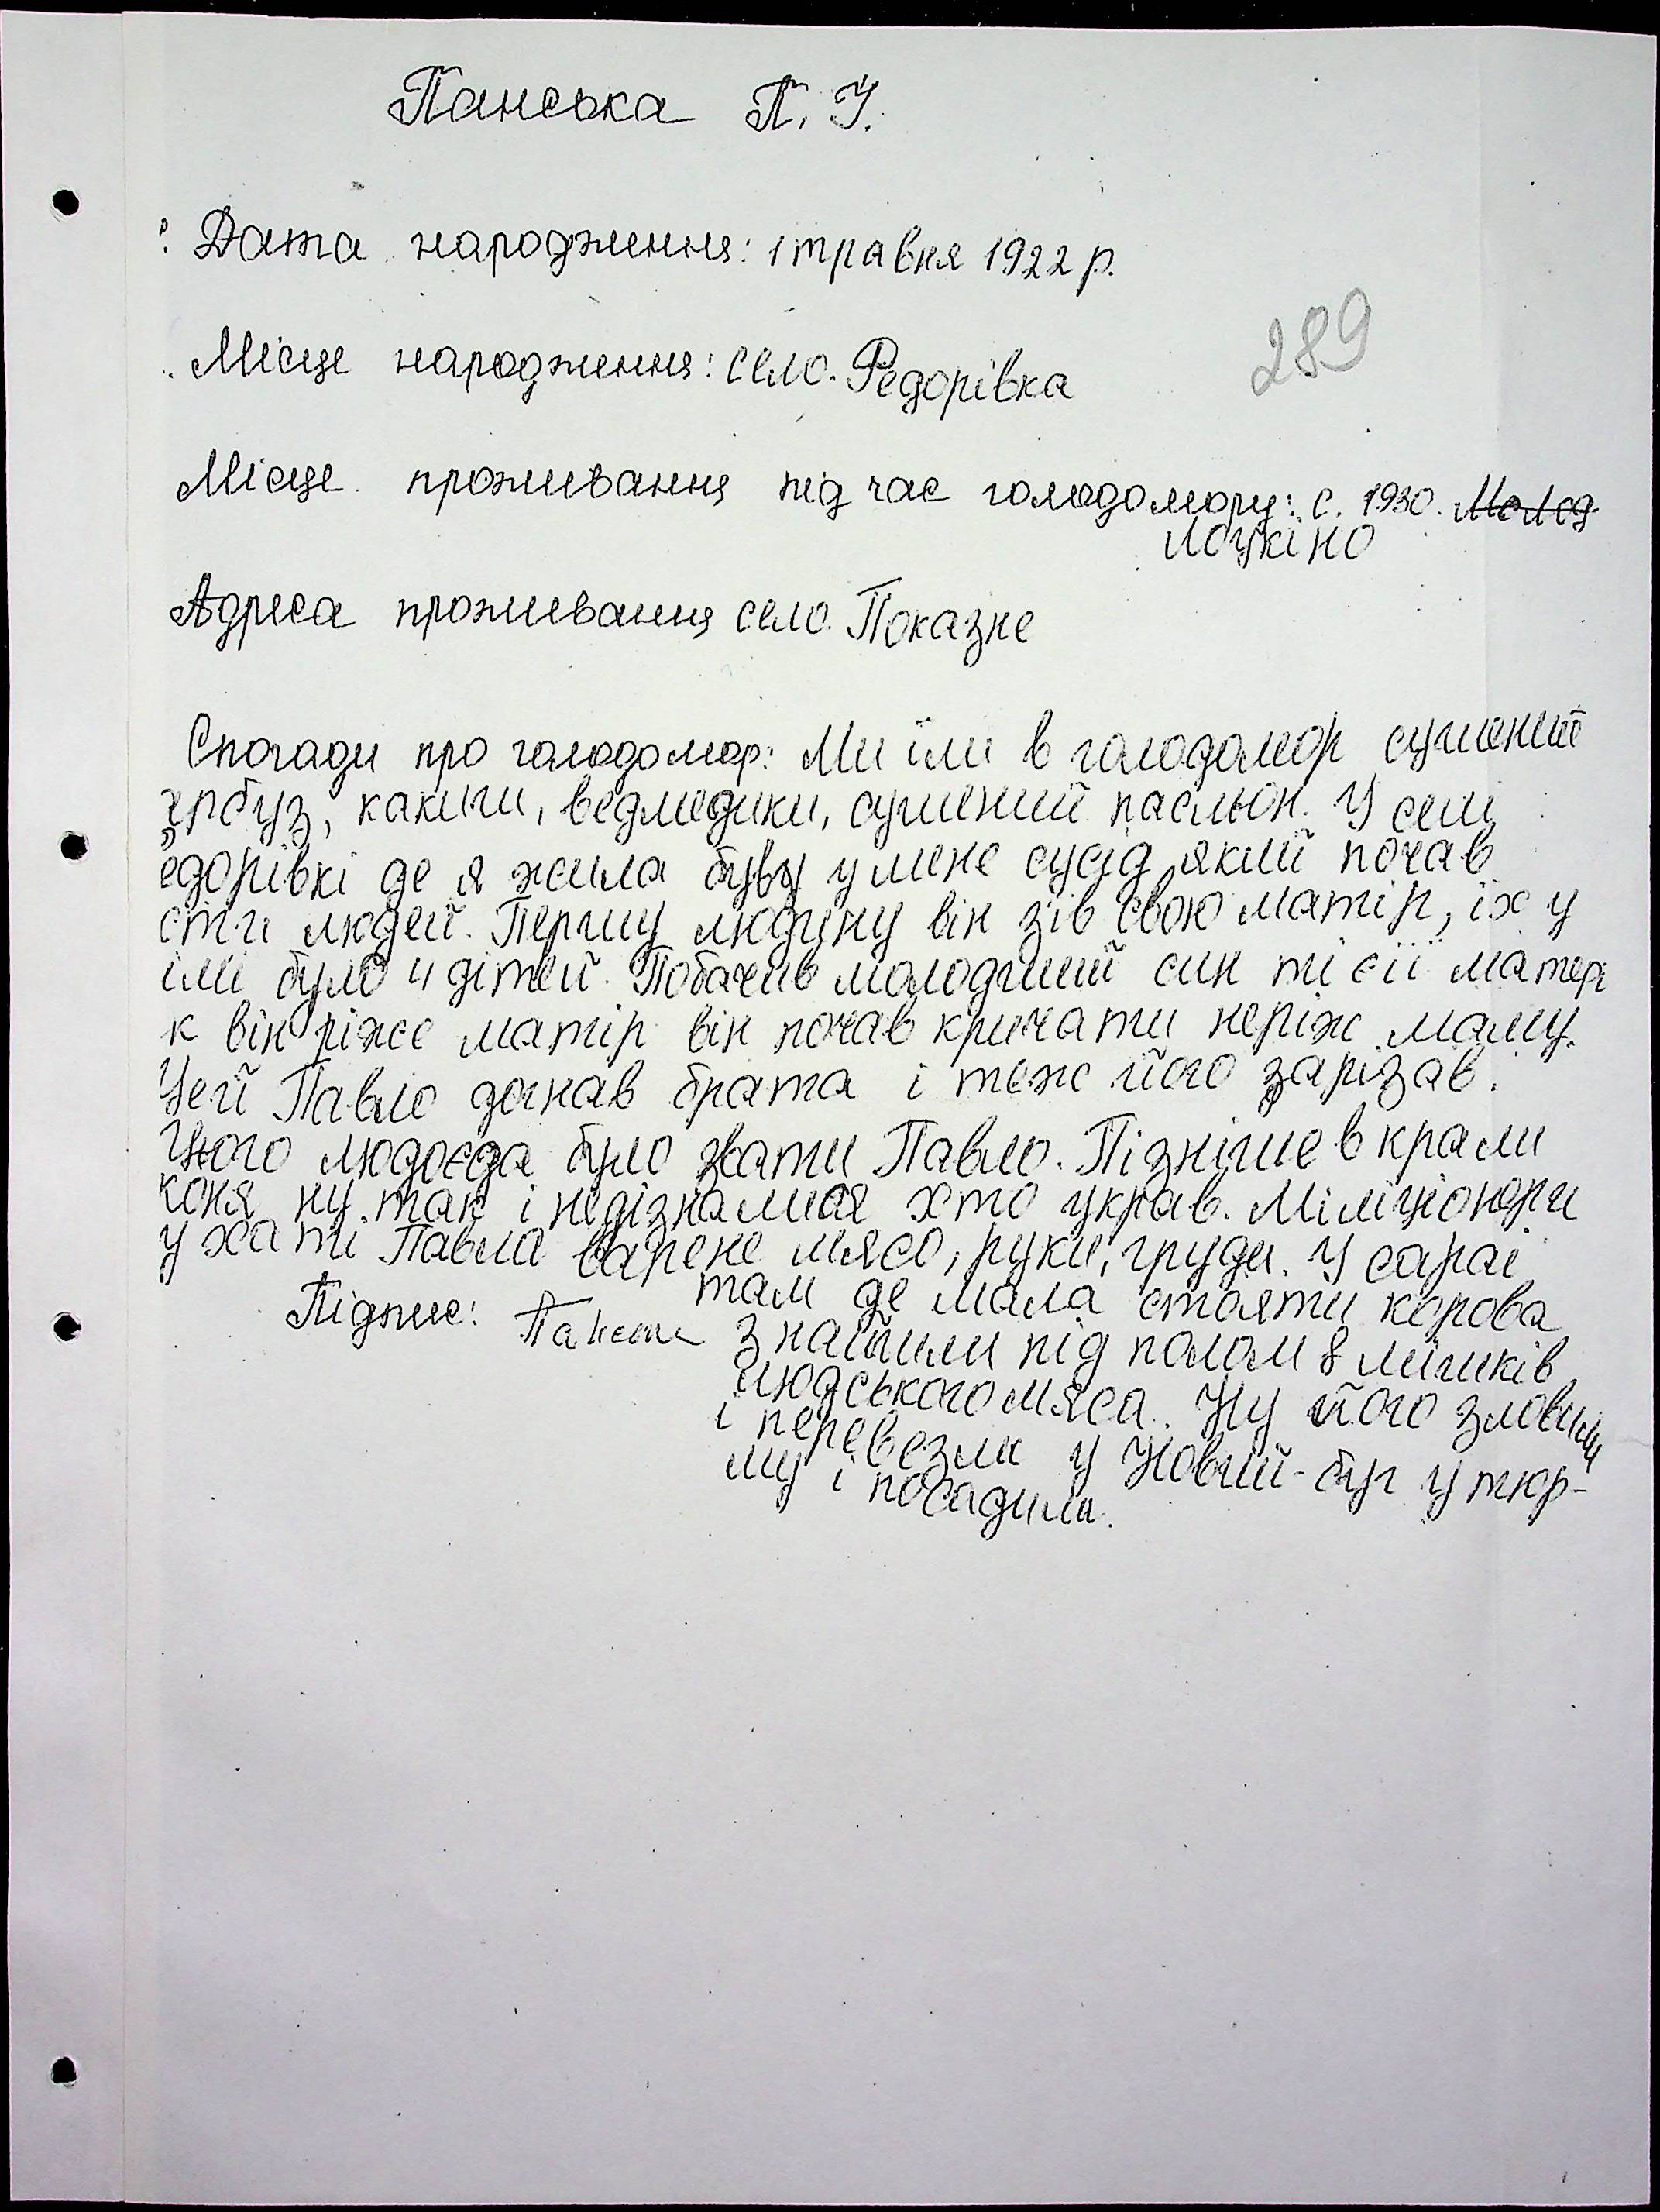 Панська П. У.
Дата народження: 1 травня 1922 р.
289
Місце народження: село. Федорівка
Місце проживання під час голодомору: с. 1930.
Лоцкіно
Адреса проживання село. Показне
Спогади про голодомор: Ми їли в голодомор сушений
арбуз, качиги, ведмедики, сушений пасльон. У селі
едорівкі де я жила був у мене сусід який почав
сти людей. Першу людину він зїв свою матір, їх у
імї було 4 дітей. Побачив молодший син тієїї матері
к він ріже матір він почав кричати неріж маму.
Цей Павло догнав брата і теж його зарізав.
Цього людоєда було звати Павло. Пізніше вкрали
коня ну так і недізналися хто украв. Міліціонери
у хаті Павла варене мясо, руки, груди. У сараї
там де мала стояти корова
Підпис:
знайшли під полом 8 мішків
людського мяса. Ну його зловили
і перевезли у Новий-буг у тюр-
му і посадили.